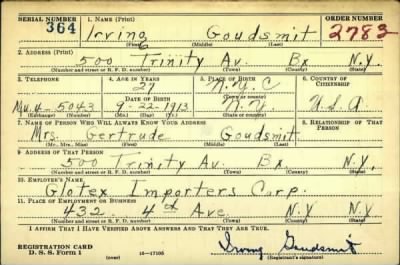 SERIAL NUMBER 1. NAME (Print) ORDER NUMBER
364 Irving Goudsmit 2783
(First) (Middle) (Last)
2. ADDRESS (Print)
500 Trinity Av. Bx N.Y.
(Number and street or R. F. D. number) (Town) (County) (State)
3. TELEPHONE 4. AGE IN YEARS 5. PLACE OF BIRTH 6. COUNTRY OF CITIZENSHIP
27 N.Y.C
DATE OF BIRTH (Town or county)
Mu.4-5043 9-22-1913 N.Y. U.S.A
(Exchange) (Number) (Mo.) (Day) (Yr.) (State or country)
7. NAME OF PERSON WHO WILL ALWAYS KNOW YOUR ADDRESS 8. RELATIONSHIP OF THAT PERSON
Mrs. Gertrude Goudsmit
(Mr., Mrs., Miss) (First) (Middle) (Last)
9. ADDRESS OF THAT PERSON
500 Trinity Av. Bx N.Y.
(Number and street or R. F. D. number) (Town) (County) (State)
10. EMPLOYER'S NAME
Glotex Importers Corp.
11. PLACE OF EMPLOYMENT OR BUSINESS
432 4th Ave. N.Y N.Y
(Number and street or R. F. D. number) (Town) (County) (State)
I AFFIRM THAT I HAVE VERIFIED ABOVE ANSWERS AND THAT THEY ARE TRUE.
REGISTRATION CARD
D. S. S. FORM 1 (over) 16-17105 Irving Goudsmit
(Registrant's signature)